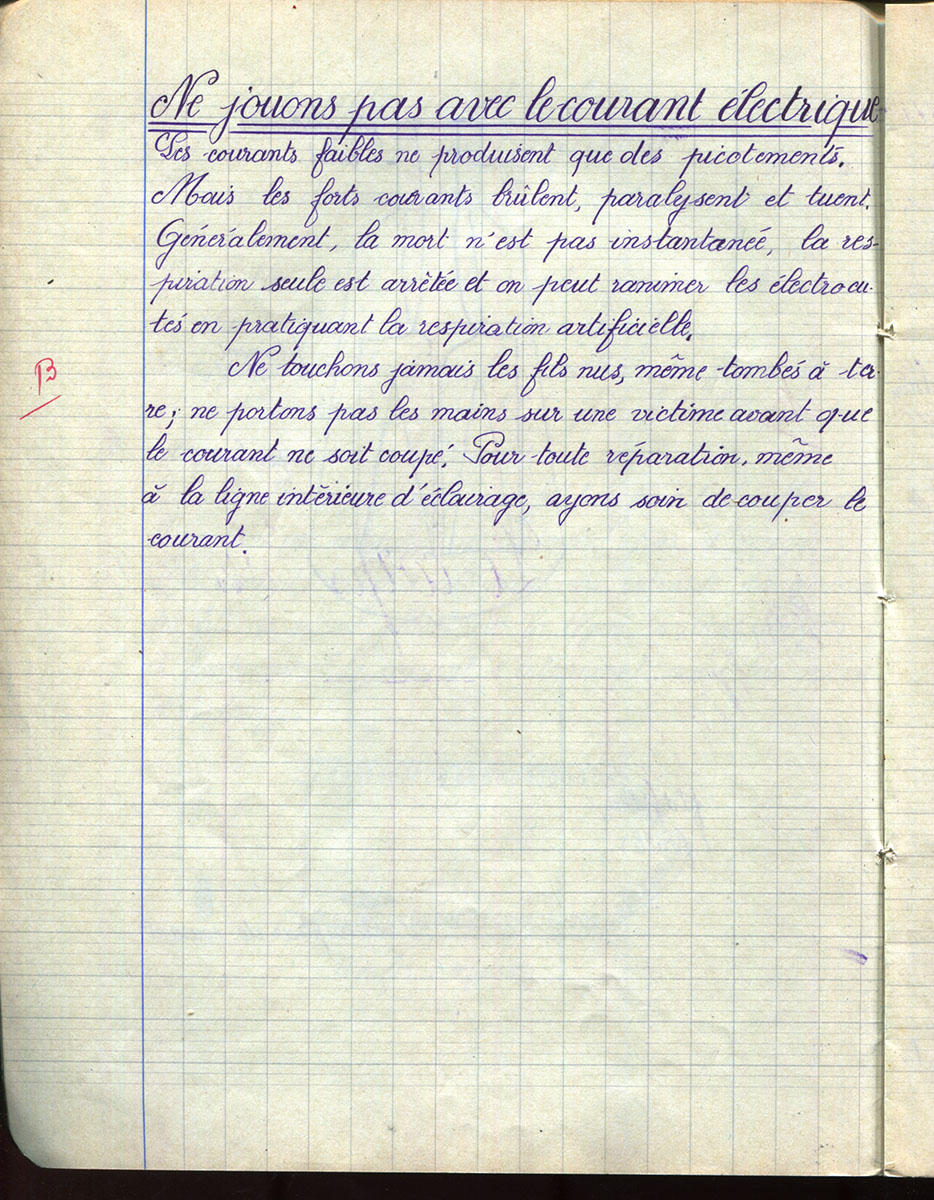 Ne jouons pas avec le courant électrique
Les courants faibles ne produisent que des picotements.
Mais les forts courants brûlent, paralysent et tuent.
Généralement, la mort n'est pas instantanée, la res-
piration seule est arrêtée et on peut ranimer les électrocu-
tés en pratiquant la respiration artificielle.
Ne touchons jamais les fils nus, même tombés à ter-
re; ne portons pas les mains sur une victime avant que
B
le courant ne soit coupé. Pour toute réparation, même
à la ligne intérieure d'éclairage, ayons soin de couper le
courant.